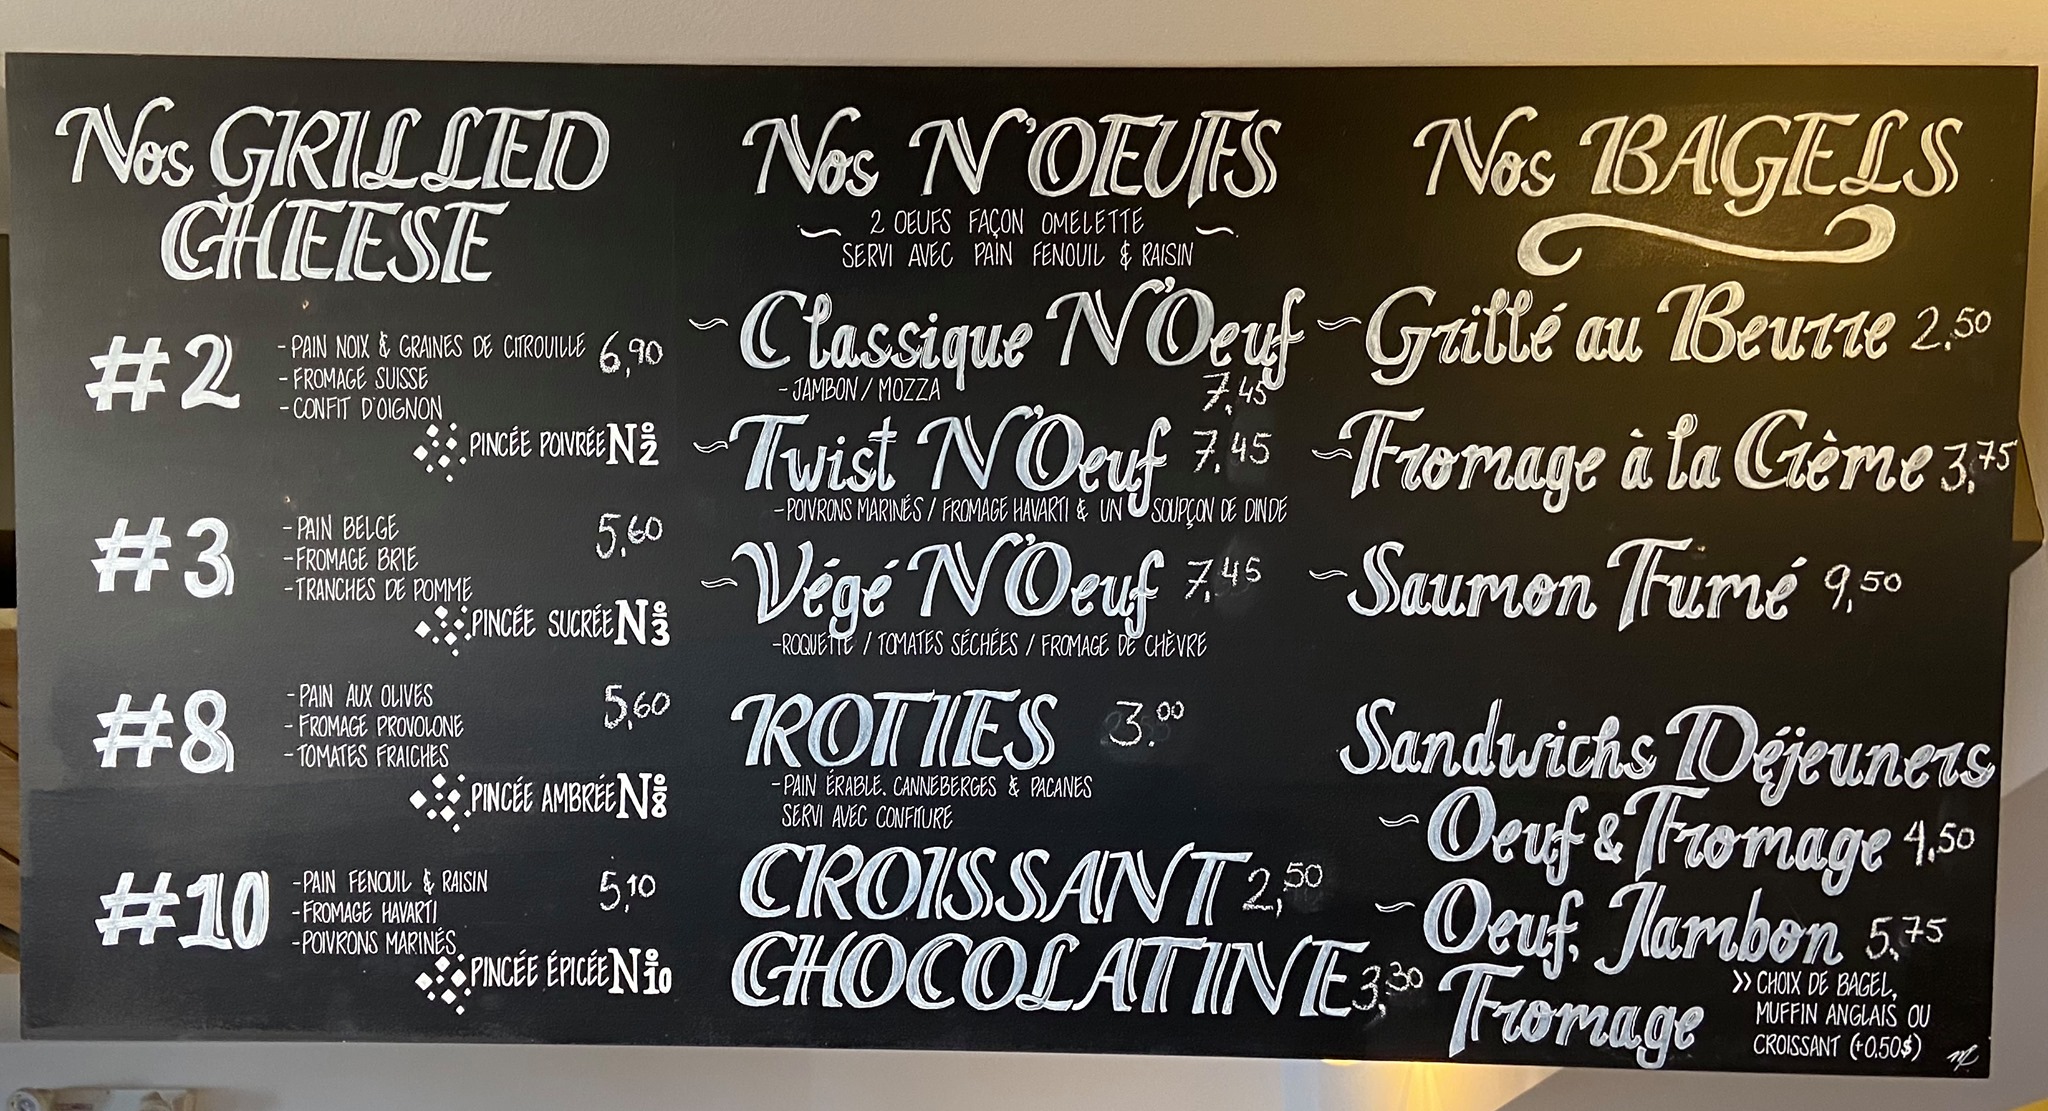 Nos GRILLED
CHEESE
#2
- PAIN NOIX & GRAINES DE CITROUILLE 6,90
- FROMAGE SUISSE
- CONFIT D'OIGNON
PINCÉE POIVRÉE Nº2
#3
- PAIN BELGE 5,60
- FROMAGE BRIE
- TRANCHES DE POMME
PINCÉE SUCRÉE Nº3
#8
- PAIN AUX OLIVES 5,60
- FROMAGE PROVOLONE
- TOMATES FRAICHES
PINCÉE AMBRÉE Nº8
#10
- PAIN FENOUIL & RAISIN 5,10
- FROMAGE HAVARTI
- POIVRONS MARINÉS
PINCÉE ÉPICÉE Nº10
Nos N'OEUFS
2 OEUFS FAÇON OMELETTE
SERVI AVEC PAIN FENOUIL & RAISIN
~ Classique N'Oeuf
- JAMBON / MOZZA 7,45
~ Twist N'Oeuf 7,45
- POIVRONS MARINÉS / FROMAGE HAVARTI & UN SOUPÇON DE DINDE
~ Végé N'Oeuf 7,45
- ROQUETTE / TOMATES SÉCHÉES / FROMAGE DE CHÈVRE
ROTIES 3.00
- PAIN ÉRABLE, CANNEBERGES & PACANES
SERVI AVEC CONFITURE
CROISSANT 2,50
CHOCOLATINE 3,30
Nos BAGELS
~ Grillé au Beurre 2,50
~ Fromage à la Crème 3,75
~ Saumon Fumé 9,50
Sandwichs Déjeuners
~ Oeuf & Fromage 4,50
~ Oeuf, Jambon 5,75
Fromage
>> CHOIX DE BAGEL,
MUFFIN ANGLAIS OU
CROISSANT (+0,50$)